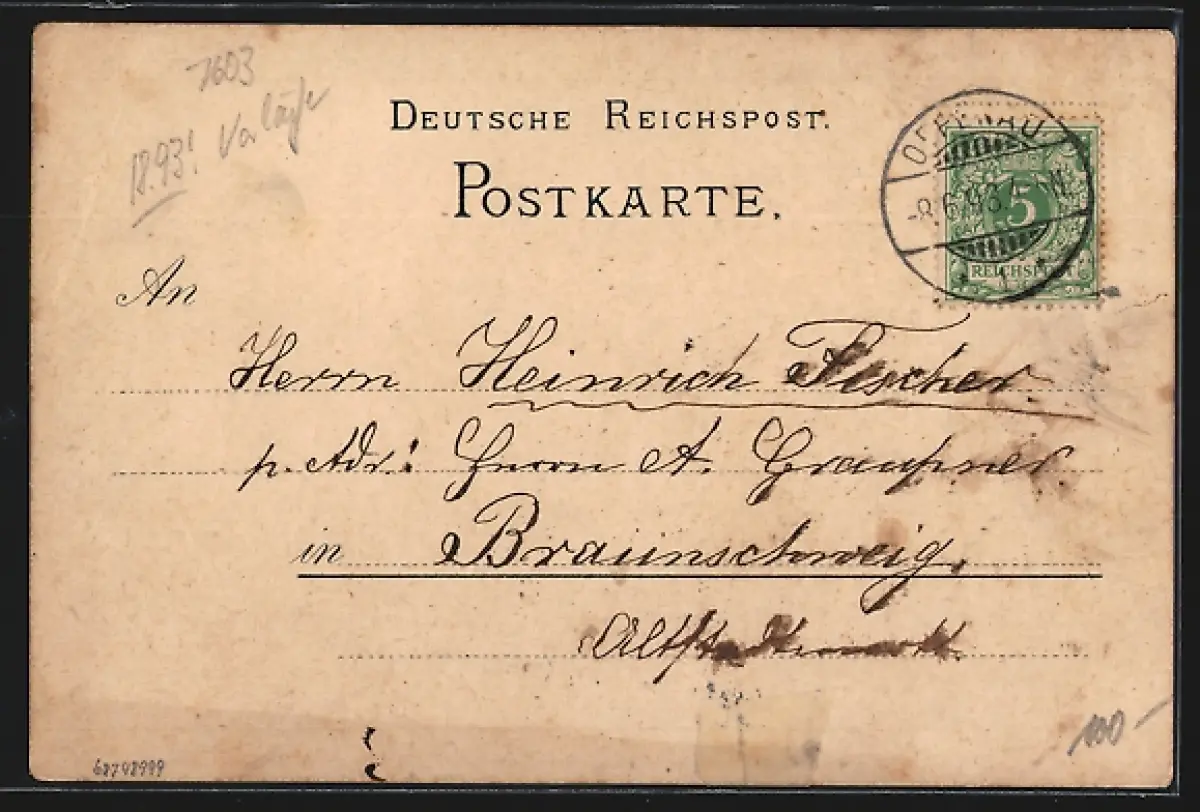 7603
1893! Vorläufer
DEUTSCHE REICHSPOST.
POSTKARTE.
OPPENAU
-8.6.93.5-6N.
5
REICHSPOST
An
Herrn Heinrich Fischer
p. Adr: Herrn A. Graupner
in Braunschweig.
Altstadtmarkt
100-
68748999